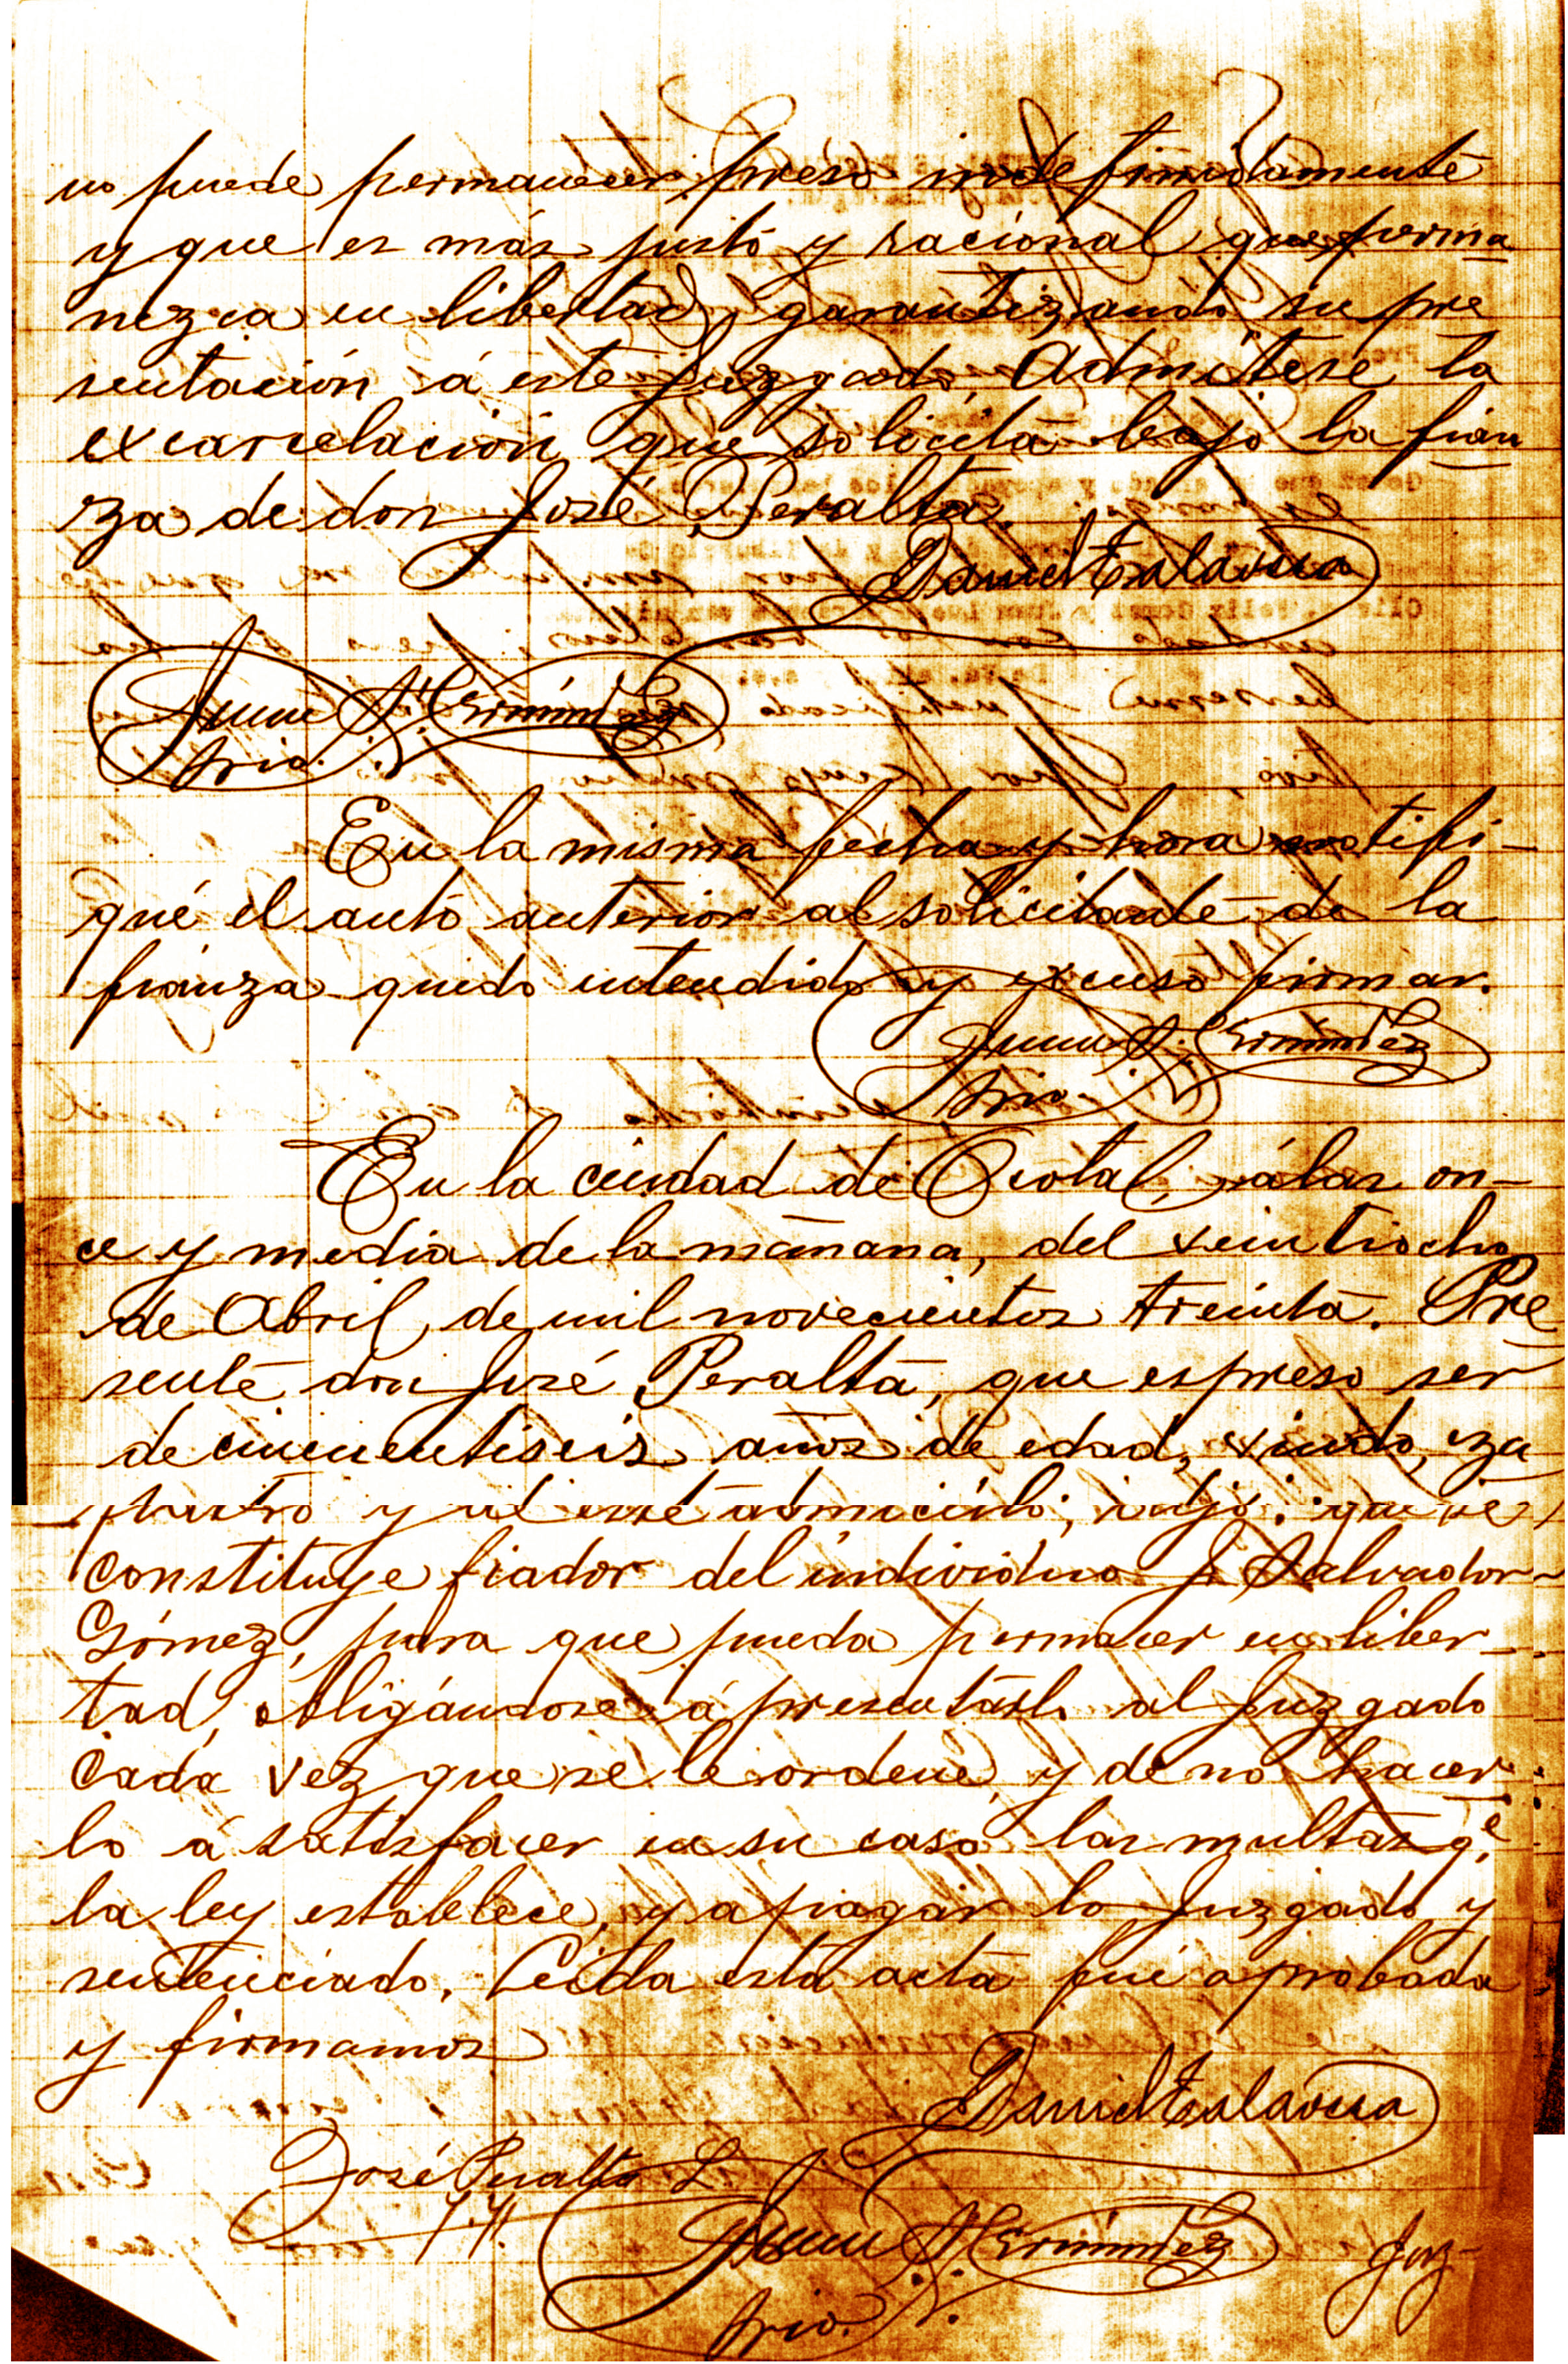 no puede permanecer preso indefinidamente
y que es más justo y racional que perma
nezca en libertad, garantizando su pre
sentación á este Juzgado. Admítese la
excarcelación que solicita bajo la fian
za de don José Peralta.
Daniel Talavera
Juan Hernández
Srio.
En la misma fecha y hora notifi-
qué el auto anterior al solicitante de la
fianza quedo entendido y excuso firmar.
Juan Hernández
Srio.
En la ciudad de Ocotal, á las on-
ce y media de la mañana, del veintiocho
de Abril, de mil novecientos treinta. Pre
sente don José Peralta, que espreso ser
de cincuentiseis años de edad, viudo, za
patero y de este domicilio, dijo: que se
constituye fiador del individuo J. Salvador
Gómez, para que pueda permacer en liber-
tad, obligándose á presentarlo al Juzgado
cada vez que se le ordene, y de no hacer
lo á satisfacer en su caso las multas q.e
la ley establece, y a pagar lo Juzgado y
sentenciado. Leída esta acta fué aprobada
y firmamos
Daniel Talavera
José Peralta L.
Juan Hernández
Srio.
Juz-